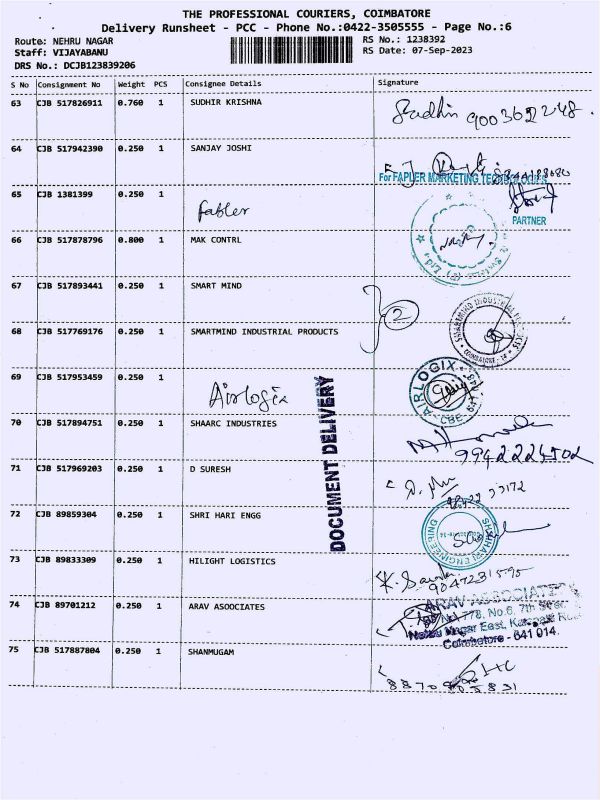 THE PROFESSIONAL COURIERS, COIMBATORE
Delivery Runsheet - PCC - Phone No.:0422-3505555 - Page No.:6
Route: NEHRU NAGAR
RS No.: 1238392
Staff: VIJAYABANU
RS Date: 07-Sep-2023
DRS No.: DCJB123839206
S No Consignment No Weight PCS Consignee Details Signature
63 CJB 517826911 0.760 1 SUDHIR KRISHNA
64 CJB 517942390 0.250 1 SANJAY JOSHI
For FAPLER MARKETING TECHNOLOGIES
65 CJB 1381399 0.250 1 Fabler
PARTNER
66 CJB 517878796 0.800 1 MAK CONTRL
67 CJB 517893441 0.250 1 SMART MIND
2
68 CJB 517769176 0.250 1 SMARTMIND INDUSTRIAL PRODUCTS
SMARTMIND INDUSTRIAL PRODUCTS
69 CJB 517953459 0.250 1 Airlogix
AIRLOGIX
DOCUMENT DELIVERY
70 CJB 517894751 0.250 1 SHAARC INDUSTRIES
71 CJB 517969203 0.250 1 D SURESH
72 CJB 89859304 0.250 1 SHRI HARI ENGG
73 CJB 89833309 0.250 1 HILIGHT LOGISTICS
74 CJB 89701212 0.250 1 ARAV ASOOCIATES
ARAV ASSOCIATES
778, No.6, 7th Street
Nehru Nagar East, Kalapatti Road
Coimbatore - 641 014.
75 CJB 517887804 0.250 1 SHANMUGAM